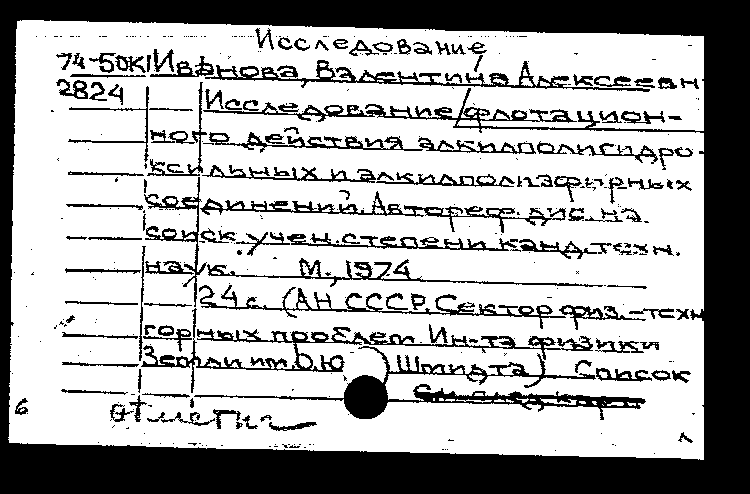 Исследование
74-50К Иванова, Валентина Алексеевн
2824 Исследование/флотацион-
ного действия алкилполигидро-
ксильных и алкилполиэфирных
соединений. Автореф. дис. на
соиск. учен. степени канд. техн.
наук. М., 1974
24 с. (АН СССР. Сектор физ.-техн
горных проблем Ин-та физики
Земли им. О.Ю Шмидта) Список
См. след. карт
6